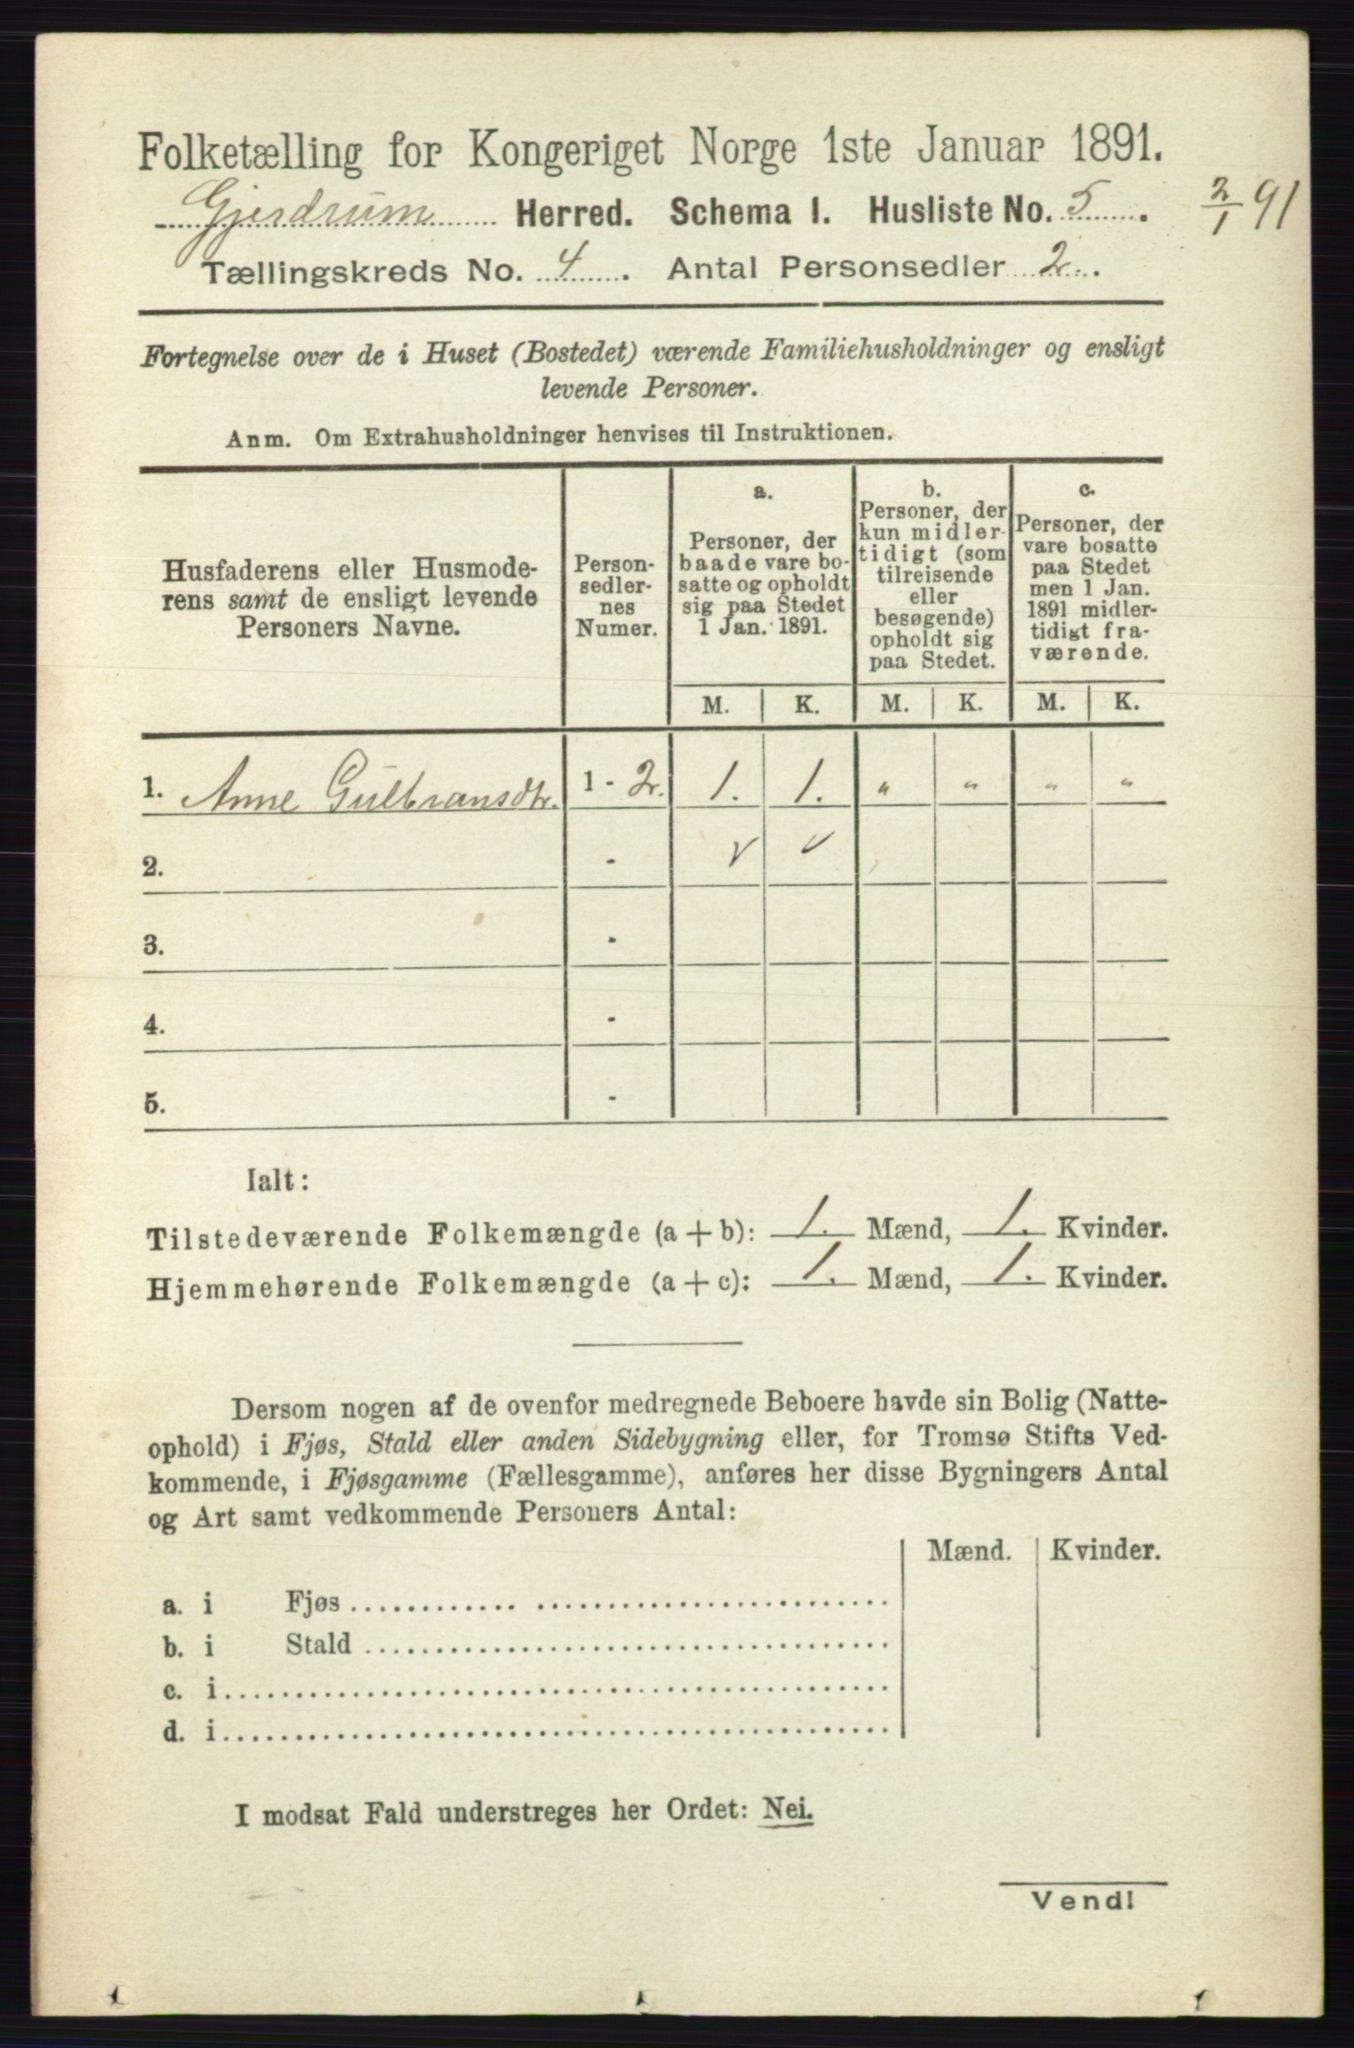 Folketælling for Kongeriget Norge 1ste Januar 1891.
Gjerdrum Herred. Schema I. Husliste No. 5. 2/1 91
Tællingskreds No. 4. Antal Personsedler 2.
Fortegnelse over de i Huset (Bostedet) værende Familiehusholdninger og ensligt
levende Personer.
Anm. Om Extrahusholdninger henvises til Instruktionen.
Husfaderens eller Husmode-
rens samt de ensligt levende
Personers Navne.
Person-
sedler-
nes
Numer.
a.
Personer, der
baade vare bo-
satte og opholdt
sig paa Stedet
1 Jan. 1891.
b.
Personer, der
kun midler-
tidigt (som
tilreisende
eller
besøgende)
opholdt sig
paa Stedet.
c.
Personer, der
vare bosatte
paa Stedet
men 1 Jan.
1891 midler-
tidigt fra-
værende.
M. K. M. K. M. K.
1. Anne Gulbransdtr. 1 - 2. 1. 1. " " " "
2. - v v
3. -
4. -
5. -
Ialt:
Tilstedeværende Folkemængde (a + b): 1. Mænd, 1. Kvinder.
Hjemmehørende Folkemængde (a + c): 1. Mænd, 1. Kvinder.
Dersom nogen af de ovenfor medregnede Beboere havde sin Bolig (Natte-
ophold) i Fjøs, Stald eller anden Sidebygning eller, for Tromsø Stifts Ved-
kommende, i Fjøsgamme (Fællesgamme), anføres her disse Bygningers Antal
og Art samt vedkommende Personers Antal:
Mænd. Kvinder.
a. i Fjøs
b. i Stald
c. i
d. i
I modsat Fald understreges her Ordet: Nei.
Vend!